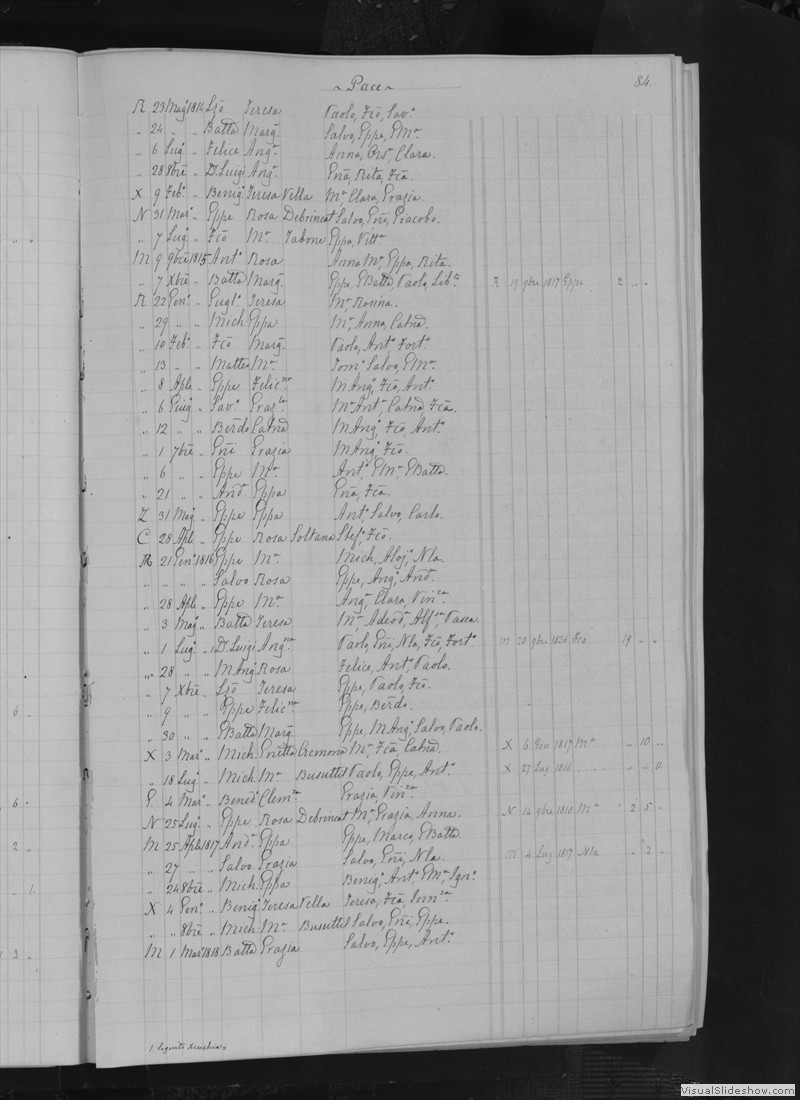 ~ Pace ~ 84.
R 23 Mag° 1814 Lzō Teresa Paolo, Fcō, Sav°
„ 24 „ „ Batta Marg. Salvo, Gppe, GMª
„ 6 Lug° „ Felice Angª Anna, Ors°, Clara.
„ 28 8bre „ D. Luigi Angª Rita, Fcā.
X 9 Feb° „ Benig° Teresa Vella Mª Clara, Grazia.
N 31 Mar° „ Gppe Rosa Debrincat Salvo, Giacobo.
„ 7 Lug° „ Fcō Mª Tabone Gppa, Vittª
M 9 9bre 1815 Ant° Rosa Anna Mª Gppa, Rita.
„ 7 Xbre „ Batta Marg. Gppe, GBatta, Paolo, Libª R 19 9bre 1817 Gppe 2 „ „
R 22 Gen° „ Gugl° Teresa Mª Rosina.
„ 29 „ „ Mich. Gppa Mª Anna, Catnā.
„ 10 Feb° „ Fcō Marg. Paolo, Ant° Fort°
„ 13 „ „ Matteo Mª Tom° Salvo, GMª
„ 8 Aple „ Gppe Felicnª MAng° Fcō, Ant°
„ 6 Giug° „ Sav° Grazlª Mª Antª Catnā, Fcā.
„ 12 „ „ Berdo Catnā MAng° Fcō, Ant°
„ 1 7bre „ Grazia MAng° Fcō.
„ 6 „ „ Gppe Mª Ant° GMª GBatta.
„ 21 „ „ And° Gppa Fcā.
Z 31 Mag° „ Gppe Gppa Ant° Salvo, Carlo.
C 28 Aple „ Gppe Rosa Soltana Stef° Fcō.
R 21 Gen° 1816 Gppe Mª Mich, Aloj° Nla.
„ „ „ „ Salvo Rosa Gppe, Ang° And°
„ 28 Aple „ Gppe Mª Angª Clara, Vinzª
„ 3 Mag° „ Batta Teresa Mª Adeodª Pasca
„ 1 Lug° „ D. Luigi Angnª Paolo, Nla, Fcō, Fort° M 20 9bre 1836 Fco 19 „ „
„ 28 „ „ MAng° Rosa Felice, Ant° Paolo.
„ 7 Xbre „ Lzō Teresa Gppe, Paolo, Fcō.
„ 9 „ „ Gppe Felicnª Gppe, Berdo.
„ 30 „ „ GBatta Marg. Gppe, MAng° Salvo, Paolo.
X 3 Mar° „ Mich. Cremona Mª Fcā, Catnā. X 6 Gen 1817 Mª „ 10 „
„ 18 Lug° „ Mich. Mª Busuttil Paolo, Gppe, Ant° X 27 Lug 1816 „ „ 11
G. 4 Mar° „ Bened° Clemª Grazia, Vinzª
N 25 Lug° „ Gppe Rosa Debrincat Mª Grazia, Anna. N 14 9bre 1818 Mª 2 5 „
M 25 Aple 1817 And° Gppa Gppe, Marco, GBatta
„ 27 „ „ Salvo Grazia Salvo, Nla. M 4 Lug 1817 Nla „ 2 „
„ 24 8bre „ Mich. Gppa Benig° Ant° GMª Ign°
X 4 Gen° „ Benig° Teresa Vella Teresa, Fcā
„ „ 8bre „ Mich. Mª Busuttil Salvo, Gppe.
M 1 Mar° 1818 Batta Grazia Salvo, Gppe, Ant°
VisualSlideshow.com